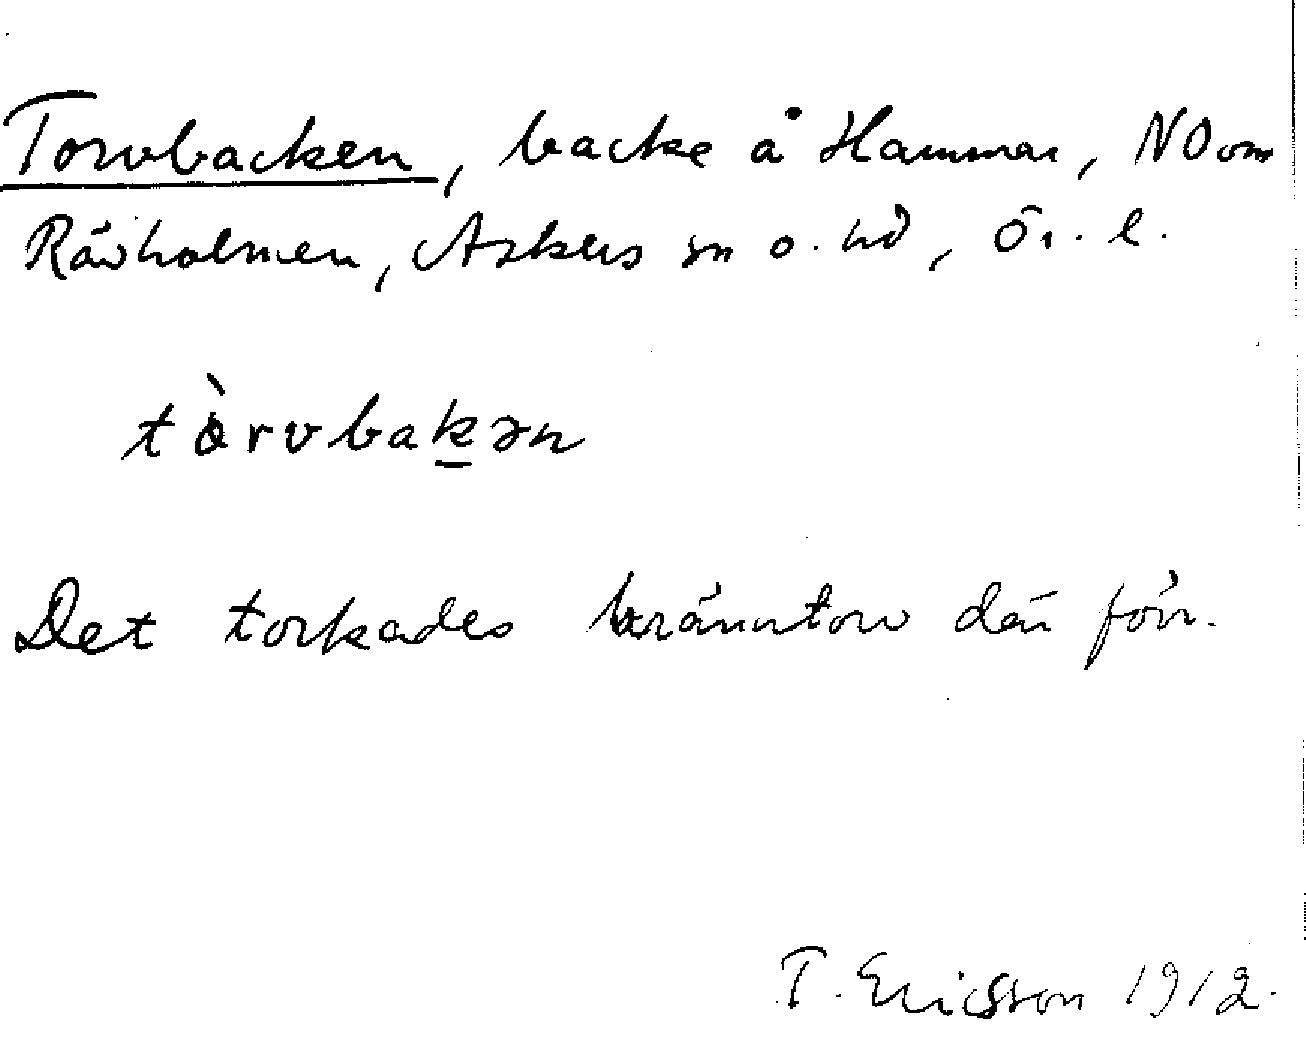 Torvbacken, backe å Hammar, NO om
Rävholmen, Askers sn o. hd, Ör. l.
tòrvbakən
Det torkades bränntorv där förr.
T. Ericsson 1912.